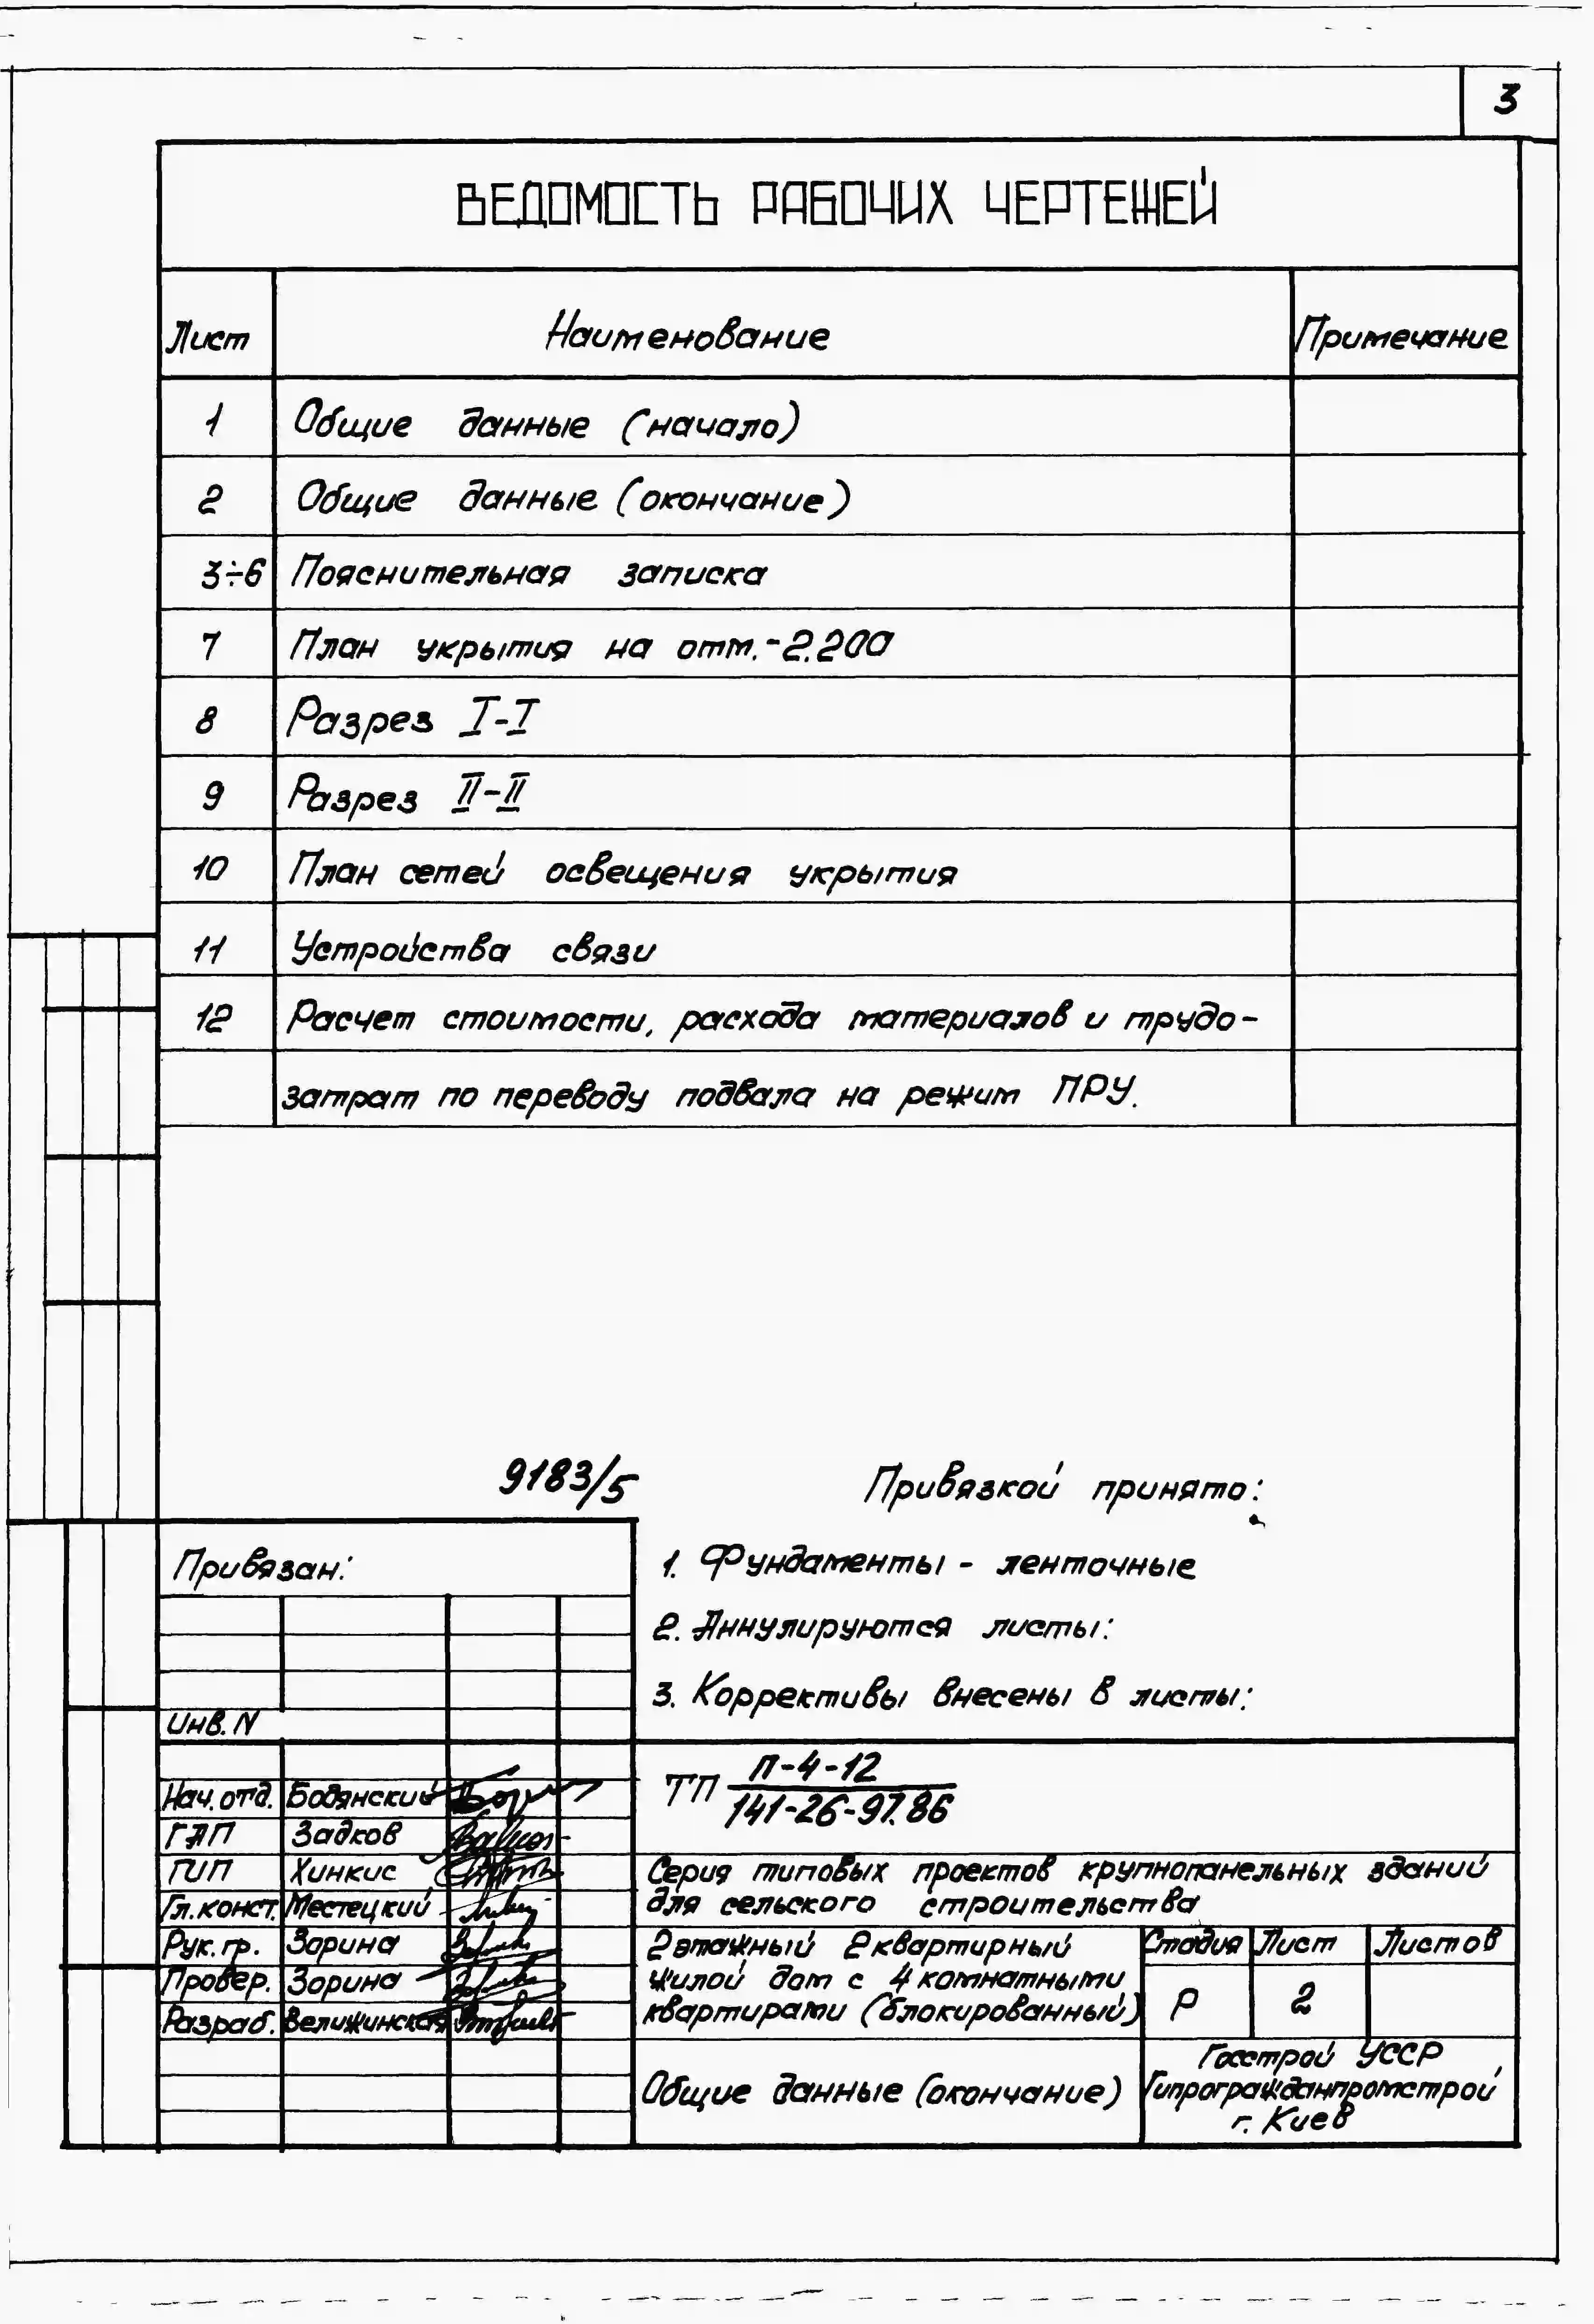 3
ВЕДОМОСТЬ РАБОЧИХ ЧЕРТЕЖЕЙ
Лист Наименование Примечание
1 Общие данные (начало)
2 Общие данные (окончание)
3÷6 Пояснительная записка
7 План укрытия на отм.-2.200
8 Разрез I-I
9 Разрез II-II
10 План сетей освещения укрытия
11 Устройства связи
12 Расчет стоимости, расхода материалов и трудо-
затрат по переводу подвала на режим ПРУ.
9183/5
Привязкой принято:
1. Фундаменты - ленточные
2. Аннулируются листы:
3. Коррективы внесены в листы:
Привязан:
Инв. N
Нач. отд. Бодянский
ГАП Задков
ГИП Хинкис
Гл. конст. Местецкий
Рук. гр. Зорина
Провер. Зорина
Разраб. Велижинская
ТП П-4-12
141-26-97.86
Серия типовых проектов крупнопанельных зданий
для сельского строительства
2этажный 2квартирный
жилой дом с 4 комнатными
квартирами (блокированный)
Стадия Лист Листов
Р 2
Общие данные (окончание)
Госстрой УССР
Гипрогражданпромстрой
г. Киев